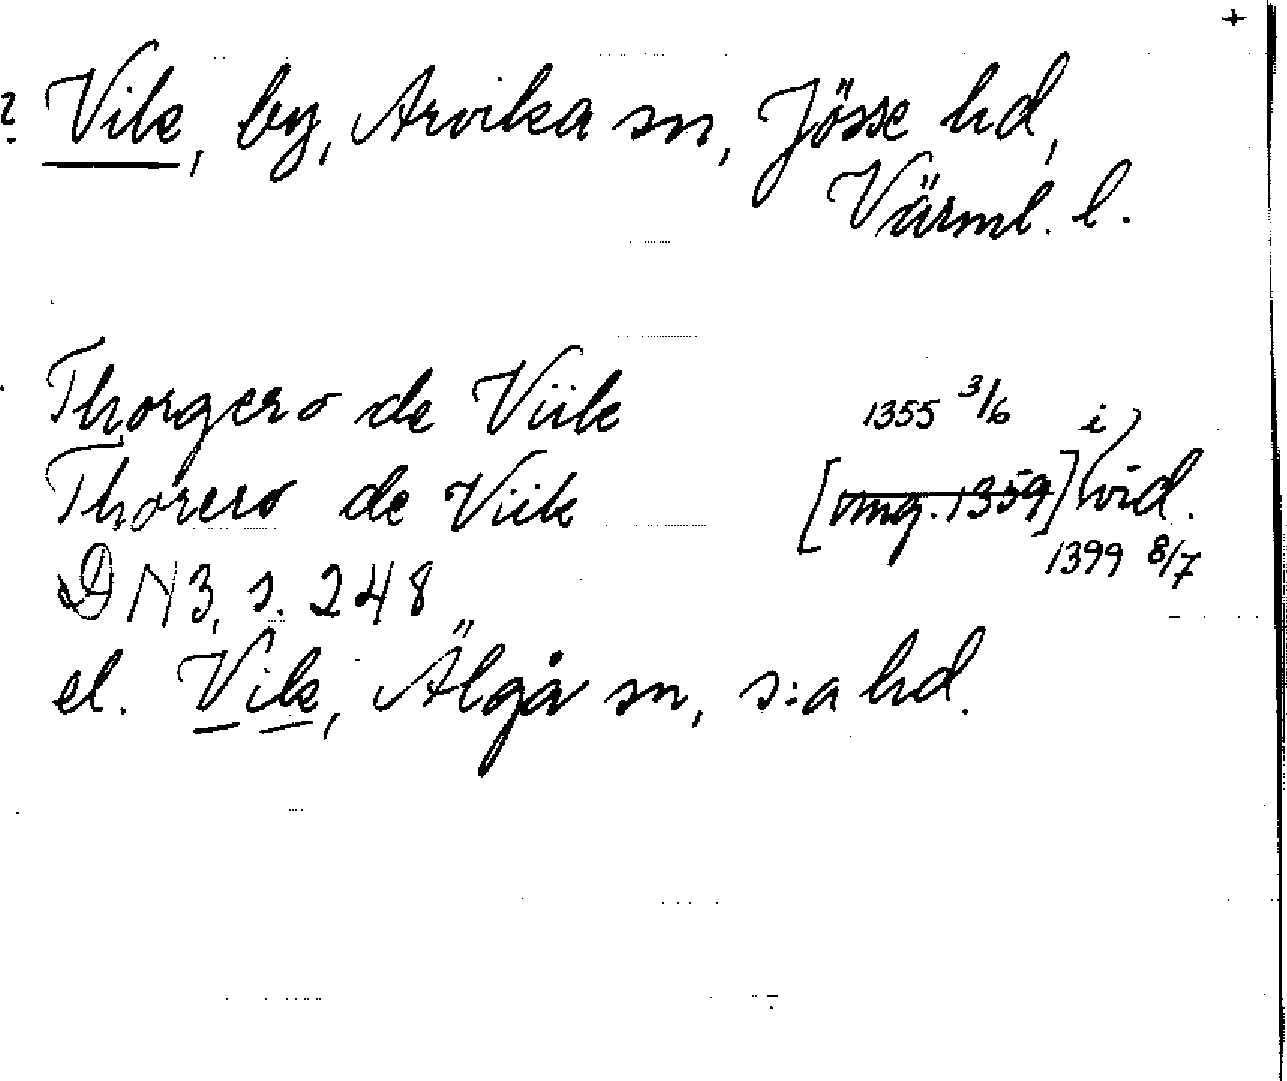 +
? Vik, by, Arvika sn, Jösse hd,
Värml. l.
Thorgero de Viik 1355 3/6 i
Thorero de Viik [omg. 1359] vid.
DN 3, s. 248 1399 8/7
el. Vik, Älgå sn, s:a hd.